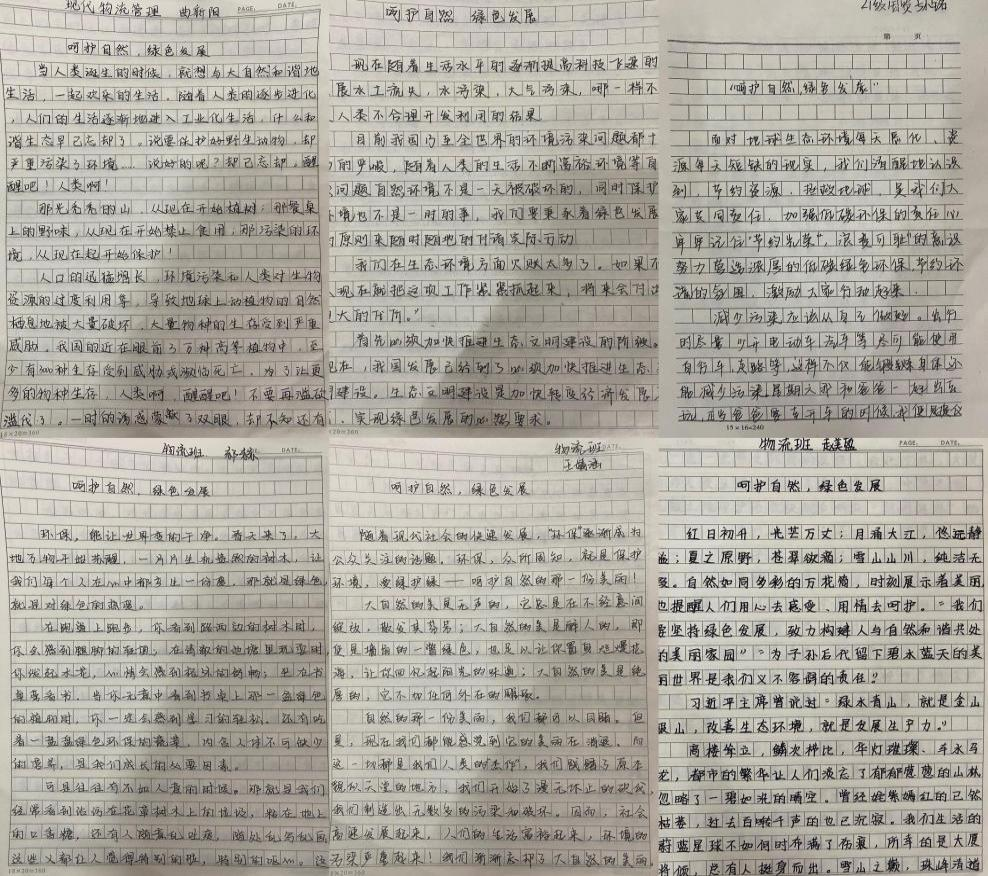 现代物流管理 曲新阳
PAGE. DATE.
呵护自然，绿色发展
当人类诞生的时候，就想与大自然和谐地
生活，一起欢乐的生活。随着人类的逐步进化
，人们的生活逐渐地进入工业化生活，什么和
谐生态早已忘却了。说要保护好野生动物，却
严重污染了环境……说好的呢？却已忘却，醒
醒吧！人类啊！
那光秃秃的山，从现在开始植树；那餐桌
上的野味，从现在开始禁止食用；那污染的环
境，从现在起开始保护！
人口的迅猛增长，环境污染和人类对生物
资源的过度利用等，导致地球上动植物的自然
栖息地被大量破坏，大量物种的生存受到严重
威胁。我国的近在眼前3万种高等植物中，至
少有3000种生存受到威胁或濒临死亡，为了让更
多的物种生存，人类啊，醒醒吧！不要再滥砍
滥伐了。一时的诱惑蒙蔽了双眼，却不知还有
18×20=360
呵护自然 绿色发展
PAGE. DATE.
现在随着生活水平的逐渐提高科技飞速的
展水土流失，水污染，大气污染，哪一样不
人类不合理开发利用的结果
目前我国乃至全世界的环境污染问题都十
的严峻，随着人类的生活不断富裕环境等自
问题自然环境不是一天被破坏的，同时保护
境也不是一时的事，我们要秉承着绿色发展
的原则来随时随地的付诸实际行动
我们在生态环境方面欠账太多了。如果不
现在就把这项工作紧紧抓起来，将来会付出
大的代价。"
首先必须加快推进生态文明建设的阶段。
现在，我国发展已经到了必须加快推进生态
建设。生态文明建设是加快转变经济发展
，实现绿色发展的必然要求。
×20=360
第 页
"呵护自然，绿色发展"
面对地球生态环境每天恶化、资
源每天短缺的现实，我们清醒地认识
到，节约资源，拯救地球，是我们大
家共同责任，加强低碳环保的责任心
牢牢记住"节约光荣"，浪费可耻"的意识
努力营造浓厚的低碳绿色环保，节约环
境的氛围，激励大家行动起来
减少污染应该从自己做起。出行
时尽量少开电动车汽车等尽可能使用
自行车走路等，这样不仅能锻炼身体还
能减少污染星期天我和爸爸一起出去
玩，正当爸爸要去开车的时候我便
15×16=240
物流班
DATE.
呵护自然，绿色发展
环保，能让世界变的干净。春天来了，大
地万物开始苏醒，一片片生机盎然的树木，让
我们每个人在心中都产生一份爱，那就是绿色
就是对绿色的热爱。
在跑道上跑步，你看到路两边的树木时，
你会感到腿脚的轻便；在清澈的池塘里玩耍时
你溅起水花，心情会感到极致的舒畅；坐在书
桌旁看书，当你无意中看到书桌上那一盆绿色
的植物时，你一定会感到学习的轻松，还有吃
着一盘盘绿色环保的蔬菜，内含人体不可缺少
的营养，是我们成长的必要因素。
可是往往有不如人意的时候。那就是我们
经常看到治污在花草树木上的垃圾，粘在地上
的口香糖，还有人随意乱吐痰，随处乱写乱画
这些又都让人觉得特别的脏，特别的恶心。
18×20=360
物流班
DATE.
呵护自然，绿色发展
随着现代社会的快速发展，"环保"逐渐成为
公众关注的话题。环保，众所周知，就是保护
环境，爱绿护绿——呵护自然的那一份美丽！
大自然的美是无声的，它总是在不经意间
绽放，散发其芬芳；大自然的美是醉人的，那
便是墙角的一簇绿色，也足以让你置身
海，让你回忆起阳光的味道；大自然的美是纯
净的，它不加任何外在的雕琢。
自然的那一份美丽，我们都可以目睹。但
是，现在我们都能感觉到它的美丽在消退。而
这一切都是我们人类的"杰作"，我们践踏了原本
貌似天堂的地方，我们开始了漫无休止的砍伐
我们制造出无数多的污染和破坏。因而，社会
高速发展起来，人们的生活富裕起来，环境的
污染严重起来！我们渐渐忘却了大自然的美丽
18×20=360
物流班 赵美盈
PAGE. DATE.
呵护自然，绿色发展
红日初升，光芒万丈；月涌大江，悠远静
谧；夏之原野，苍翠欲滴；雪山山川，纯洁无
瑕。自然如同多彩的万花筒，时刻展示着美丽
也提醒人们用心去感受、用情去呵护。"我们
要坚持绿色发展，致力构建人与自然和谐共处
的美丽家园""为子孙后代留下碧水蓝天的美
丽世界是我们义不容辞的责任"
习近平主席曾说过："绿水青山，就是金山
银山，改善生态环境，就是发展生产力。"
高楼耸立，鳞次栉比，华灯璀璨、车水马
龙，都市的繁华让人们淡忘了郁郁葱葱的山林
忽略了一碧如洗的晴空。曾经姹紫嫣红的已然
枯萎，过去百啭千声的也已沉寂。我们生活的
蔚蓝星球不知何时布满了伤痕，所幸的是大厦
将倾，总有人挺身而出。雪山之巅，珠峰清道